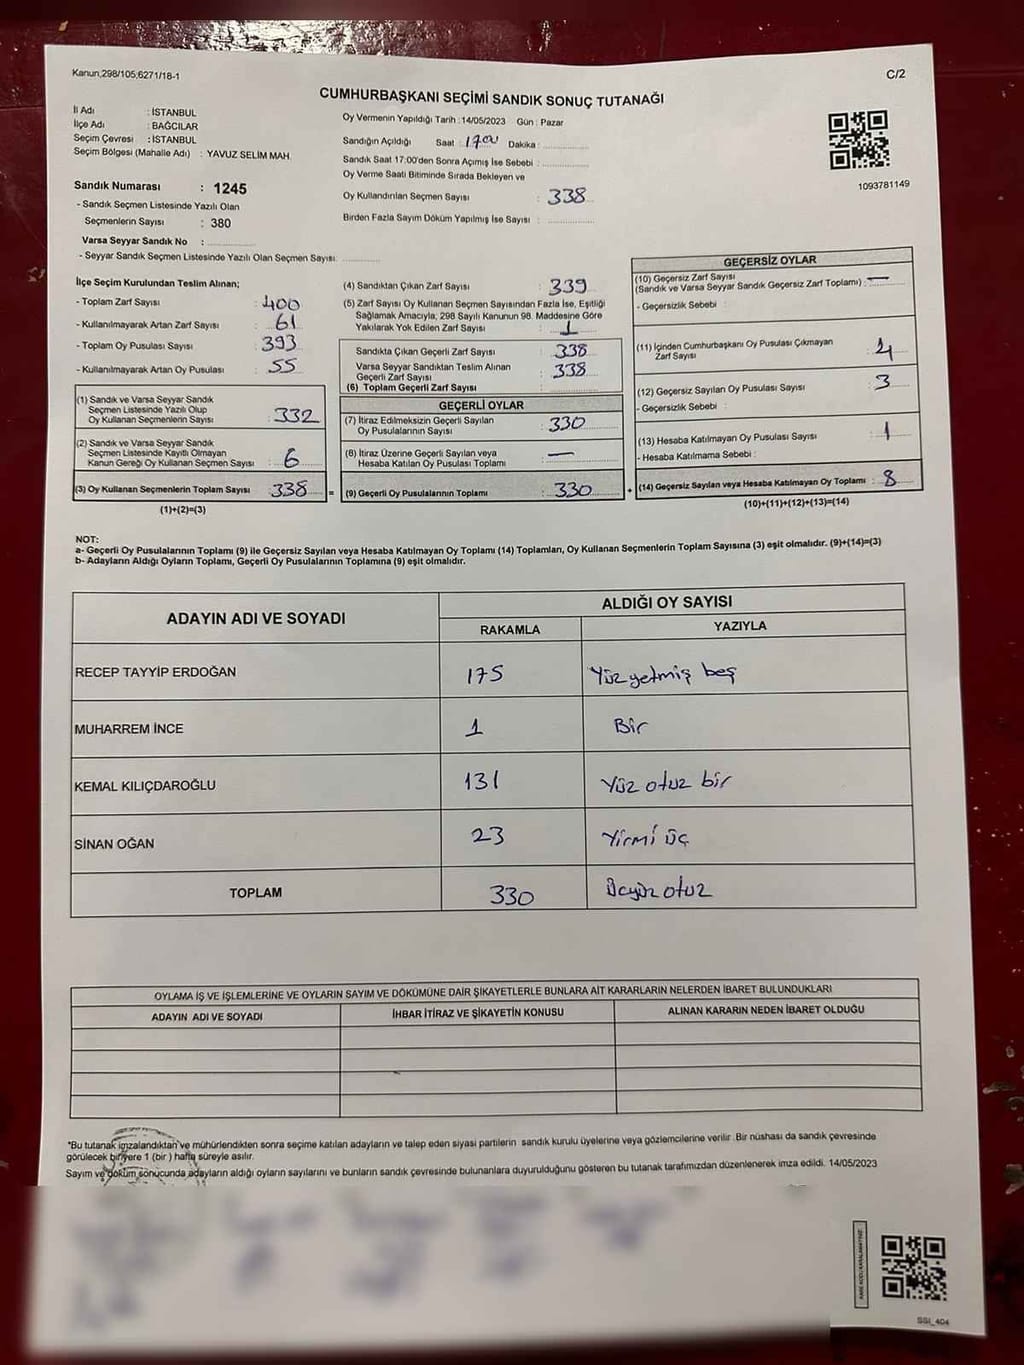 Kanun,298/105;6271/18-1
C/2
CUMHURBAŞKANI SEÇİMİ SANDIK SONUÇ TUTANAĞI
İl Adı : İSTANBUL
İlçe Adı : BAĞCILAR
Seçim Çevresi : İSTANBUL
Seçim Bölgesi (Mahalle Adı) : YAVUZ SELİM MAH.
Sandık Numarası : 1245
- Sandık Seçmen Listesinde Yazılı Olan
Seçmenlerin Sayısı : 380
Varsa Seyyar Sandık No :
- Seyyar Sandık Seçmen Listesinde Yazılı Olan Seçmen Sayısı:
Oy Vermenin Yapıldığı Tarih : 14/05/2023 Gün : Pazar
Sandığın Açıldığı Saat : 1700 Dakika :
Sandık Saat 17:00'den Sonra Açımış İse Sebebi :
Oy Verme Saati Bitiminde Sırada Bekleyen ve
Oy Kullandırılan Seçmen Sayısı : 338
Birden Fazla Sayım Döküm Yapılmış İse Sayısı :
1093781149
İlçe Seçim Kurulundan Teslim Alınan;
- Toplam Zarf Sayısı : 400
- Kullanılmayarak Artan Zarf Sayısı : 61
- Toplam Oy Pusulası Sayısı : 393
- Kullanılmayarak Artan Oy Pusulası : 55
(1) Sandık ve Varsa Seyyar Sandık
Seçmen Listesinde Yazılı Olup
Oy Kullanan Seçmenlerin Sayısı : 332
(2) Sandık ve Varsa Seyyar Sandık
Seçmen Listesinde Kayıtlı Olmayan
Kanun Gereği Oy Kullanan Seçmen Sayısı : 6
(3) Oy Kullanan Seçmenlerin Toplam Sayısı : 338 =
(1)+(2)=(3)
(4) Sandıktan Çıkan Zarf Sayısı : 339
(5) Zarf Sayısı Oy Kullanan Seçmen Sayısından Fazla İse, Eşitliği
Sağlamak Amacıyla; 298 Sayılı Kanunun 98. Maddesine Göre
Yakılarak Yok Edilen Zarf Sayısı : 1
Sandıkta Çıkan Geçerli Zarf Sayısı : 338
Varsa Seyyar Sandıktan Teslim Alınan
Geçerli Zarf Sayısı : 338
(6) Toplam Geçerli Zarf Sayısı :
GEÇERLİ OYLAR
(7) İtiraz Edilmeksizin Geçerli Sayılan
Oy Pusulalarının Sayısı : 330
(8) İtiraz Üzerine Geçerli Sayılan veya
Hesaba Katılan Oy Pusulası Toplamı : —
(9) Geçerli Oy Pusulalarının Toplamı : 330 +
GEÇERSİZ OYLAR
(10) Geçersiz Zarf Sayısı
(Sandık ve Varsa Seyyar Sandık Geçersiz Zarf Toplamı) : —
- Geçersizlik Sebebi :
(11) İçinden Cumhurbaşkanı Oy Pusulası Çıkmayan
Zarf Sayısı : 4
(12) Geçersiz Sayılan Oy Pusulası Sayısı : 3
- Geçersizlik Sebebi :
(13) Hesaba Katılmayan Oy Pusulası Sayısı : 1
- Hesaba Katılmama Sebebi :
(14) Geçersiz Sayılan veya Hesaba Katılmayan Oy Toplamı : 8
(10)+(11)+(12)+(13)=(14)
NOT:
a- Geçerli Oy Pusulalarının Toplamı (9) ile Geçersiz Sayılan veya Hesaba Katılmayan Oy Toplamı (14) Toplamları, Oy Kullanan Seçmenlerin Toplam Sayısına (3) eşit olmalıdır. (9)+(14)=(3)
b- Adayların Aldığı Oyların Toplamı, Geçerli Oy Pusulalarının Toplamına (9) eşit olmalıdır.
ADAYIN ADI VE SOYADI ALDIĞI OY SAYISI
RAKAMLA YAZIYLA
RECEP TAYYİP ERDOĞAN 175 Yüz yetmiş beş
MUHARREM İNCE 1 Bir
KEMAL KILIÇDAROĞLU 131 Yüz otuz bir
SİNAN OĞAN 23 Yirmi üç
TOPLAM 330 Üçyüz otuz
OYLAMA İŞ VE İŞLEMLERİNE VE OYLARIN SAYIM VE DÖKÜMÜNE DAİR ŞİKAYETLERLE BUNLARA AİT KARARLARIN NELERDEN İBARET BULUNDUKLARI
ADAYIN ADI VE SOYADI İHBAR İTİRAZ VE ŞİKAYETİN KONUSU ALINAN KARARIN NEDEN İBARET OLDUĞU
*Bu tutanak imzalandıktan ve mühürlendikten sonra seçime katılan adayların ve talep eden siyasi partilerin sandık kurulu üyelerine veya gözlemcilerine verilir. Bir nüshası da sandık çevresinde
görülecek bir yere 1 (bir ) hafta süreyle asılır.
Sayım ve döküm sonucunda adayların aldığı oyların sayılarını ve bunların sandık çevresinde bulunanlara duyurulduğunu gösteren bu tutanak tarafımızdan düzenlenerek imza edildi. 14/05/2023
SSI_404